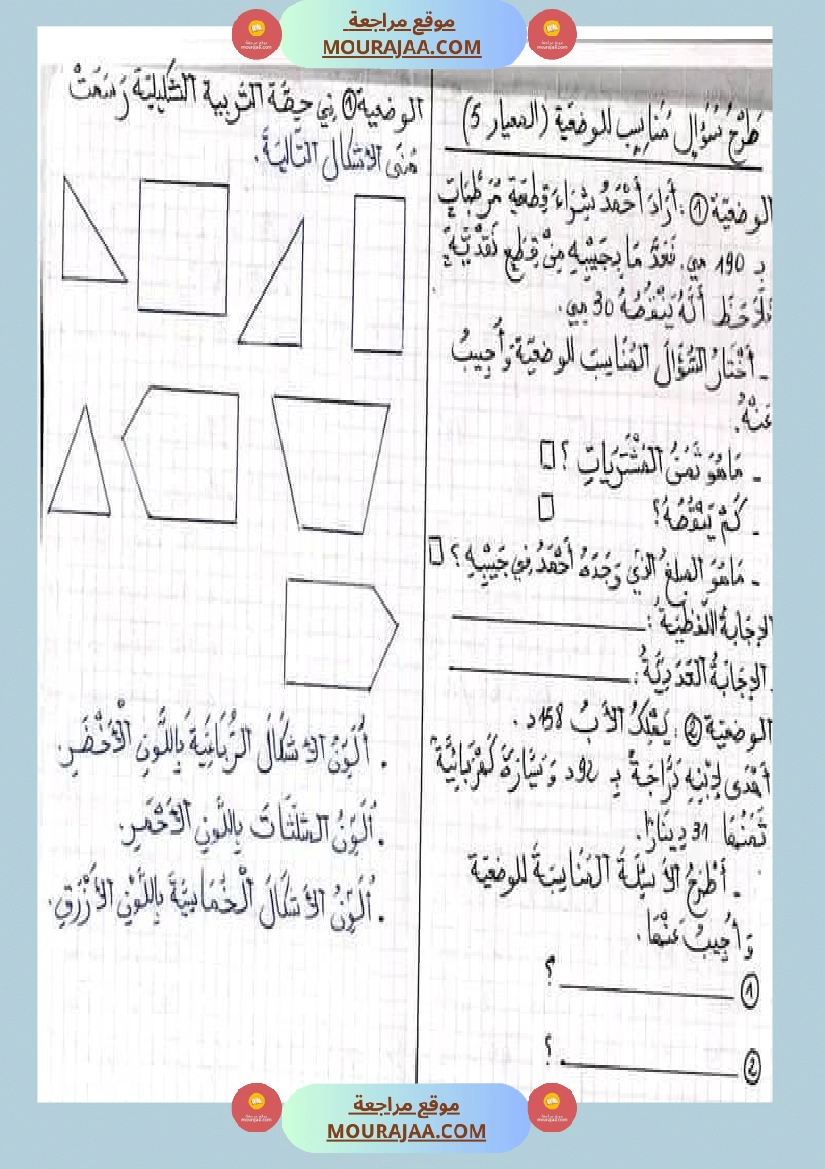 موقع مراجعة
MOURAJAA.COM
طَرْحُ سُؤَالٍ مُنَاسِبٍ للوضعيّة (المعيار 5)
الوضعيّة ①: أَرَادَ أَحْمَدُ شِرَاءَ قِطْعَةِ مُرَطَّبَاتٍ
بـ 190 مي. فَعَدَّ مَا بِجَيْبِهِ مِنْ قِطَعٍ نَقْدِيَّةٍ
فَلَاحَظَ أَنَّهُ يَنْقُصُهُ 30 مي.
- أَخْتَارُ السُّؤَالَ المُنَاسِبَ للوضعيّة وَأُجِيبُ
عَنْهُ.
- مَا هُوَ ثَمَنُ المُشْتَرَيَاتِ ؟ □
- كَمْ يَنْقُصُهُ؟ □
- مَا هُوَ المبلغُ الّذي وَجَدَهُ أَحْمَدُ فِي جَيْبِهِ؟ □
الإِجَابَةُ اللَّفْظِيَّةُ :
الإِجَابَةُ العَدَدِيَّةُ:
الوضعيّة ②: يَمْلِكُ الأَبُ 158د.
أَهْدَى لِابْنِهِ دَرَّاجَةً بِـ 92د وَسَيَّارَةً كَهْرَبَائِيَّةً
ثَمَنُهَا 31 دِينَارًا.
- أَطْرَحُ الأَسْئِلَةَ المُنَاسِبَةَ للوضعيّة
وَأُجِيبُ عَنْهَا.
① ؟
② ؟
الوضعية① فِي حِصَّة التّربية التّشكيليّة رَسَمَتْ
مُنَى الأشكال التّاليَة.
. أُلَوِّنُ الأشْكَالَ الرُّبَاعِيَّةَ بِاللَّوْنِ الأَخْضَرِ.
. أُلَوِّنُ المثلّثَاتَ بِاللَّوْنِ الأَحْمَرِ.
. أُلَوِّنُ الأَشْكَالَ الْخُمَاسِيَّةَ بِاللَّوْنِ الأَزْرَقِ.
موقع مراجعة
MOURAJAA.COM